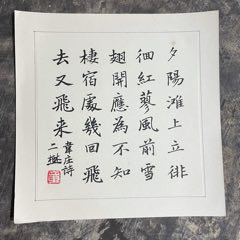 夕陽灘上立徘
徊紅蓼風前雪
翅開應為不知
棲宿處幾回飛
去又飛来
韋庄诗
二